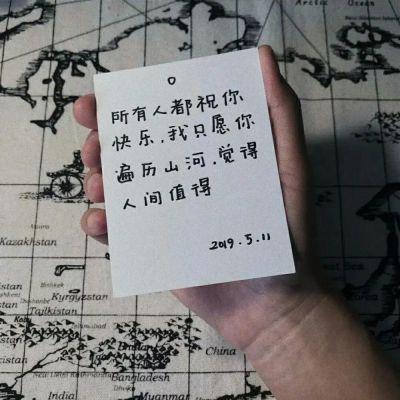 Arctic
Ocean
所有人都祝你
快乐,我只愿你
遍历山河,觉得
人间值得
2019.5.11
Kazakhstan
Bishkek
Kyrgyzstan
Tajikistan
Islamabad
China
Bangladesh
Dhaka
India
Myanmar